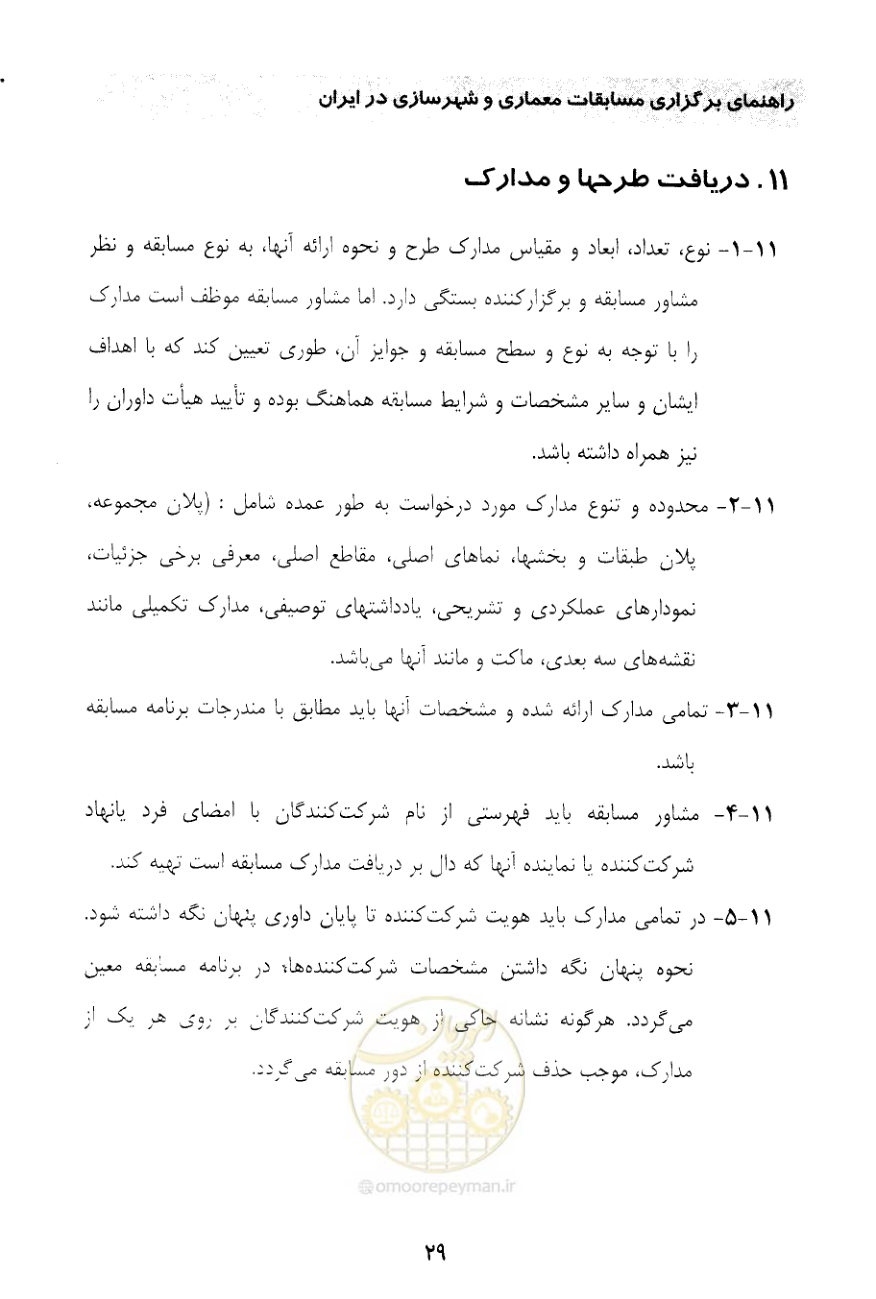 راهنمای برگزاری مسابقات معماری و شهرسازی در ایران
۱۱. دریافت طرحها و مدارک
۱۱-۱- نوع، تعداد، ابعاد و مقیاس مدارک طرح و نحوه ارائه آنها، به نوع مسابقه و نظر
مشاور مسابقه و برگزارکننده بستگی دارد. اما مشاور مسابقه موظف است مدارک
را با توجه به نوع و سطح مسابقه و جوایز آن، طوری تعیین کند که با اهداف
ایشان و سایر مشخصات و شرایط مسابقه هماهنگ بوده و تأیید هیأت داوران را
نیز همراه داشته باشد.
۱۱-۲- محدوده و تنوع مدارک مورد درخواست به طور عمده شامل : (پلان مجموعه،
پلان طبقات و بخشها، نماهای اصلی، مقاطع اصلی، معرفی برخی جزئیات،
نمودارهای عملکردی و تشریحی، یادداشتهای توصیفی، مدارک تکمیلی مانند
نقشه‌های سه بعدی، ماکت و مانند آنها می‌باشد.
۱۱-۳- تمامی مدارک ارائه شده و مشخصات آنها باید مطابق با مندرجات برنامه مسابقه
باشد.
۱۱-۴- مشاور مسابقه باید فهرستی از نام شرکت‌کنندگان با امضای فرد یانهاد
شرکت‌کننده یا نماینده آنها که دال بر دریافت مدارک مسابقه است تهیه کند.
۱۱-۵- در تمامی مدارک باید هویت شرکت‌کننده تا پایان داوری پنهان نگه داشته شود.
نحوه پنهان نگه داشتن مشخصات شرکت‌کننده‌ها، در برنامه مسابقه معین
می‌گردد. هرگونه نشانه حاکی از هویت شرکت‌کنندگان بر روی هر یک از
مدارک، موجب حذف شرکت‌کننده از دور مسابقه می‌گردد.
امور پیمان
@omoorepeyman.ir
۲۹